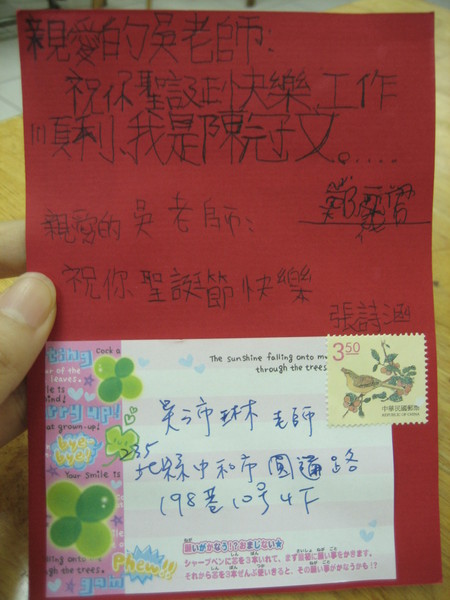 親愛的吳老師:
祝你聖誕快樂、工作
順利、我是陳冠文。.....
親愛的吳老師:
祝你聖誕節快樂
張詩涵
3.50
中華民國郵票
REPUBLIC OF CHINA
Cock a
The sunshine falling onto m
through the trees.
of the
leaves.
rry up!
grown-up
bye-bye!
Your smile is
吳沛琳 老師
235
北縣中和市圓通路
198巷10号4F
onto
the trees.
Phew!!
願いがかなう!?おまじない★
シャープペンに芯を3本いれて、まず最初に願い事をかきます。
それから芯を3本ぜんぶ使いきると、その願い事がかなうかも!?